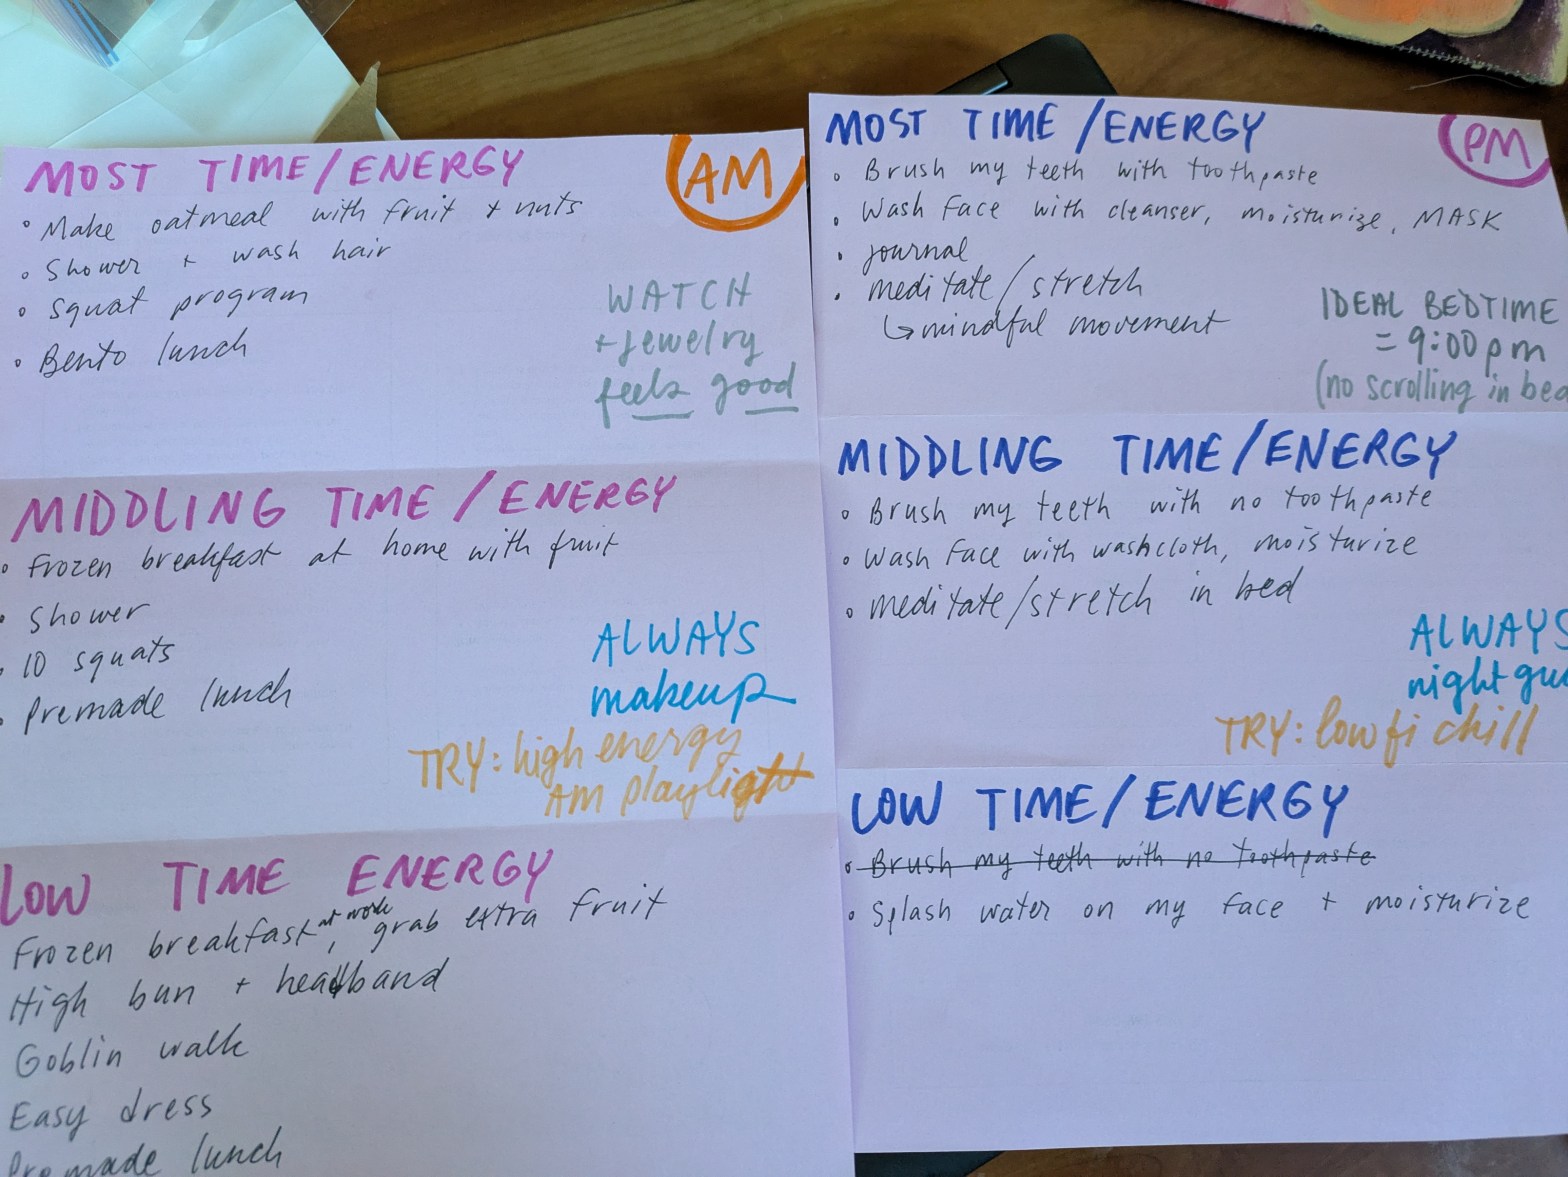 MOST TIME/ENERGY
AM
• Make oatmeal with fruit + nuts
• Shower + wash hair
• Squat program
• Bento lunch
WATCH
+ Jewelry
feels good
MIDDLING TIME/ENERGY
• Frozen breakfast at home with fruit
• Shower
• 10 squats
• Premade lunch
ALWAYS
makeup
TRY: high energy
AM playlist
LOW TIME ENERGY
Frozen breakfast at work, grab extra fruit
High bun + headband
Goblin walk
Easy dress
Premade lunch
MOST TIME/ENERGY
PM
• Brush my teeth with toothpaste
• Wash Face with cleanser, moisturize, MASK
• Journal
• meditate/stretch
↳ mindful movement
IDEAL BEDTIME
= 9:00pm
(no scrolling in bed
MIDDLING TIME/ENERGY
• Brush my teeth with no toothpaste
• Wash Face with washcloth, moisturize
• Meditate/stretch in bed
ALWAYS
night gu
TRY: low fi chill
LOW TIME/ENERGY
• Brush my teeth with no toothpaste
• Splash water on my face + moisturize